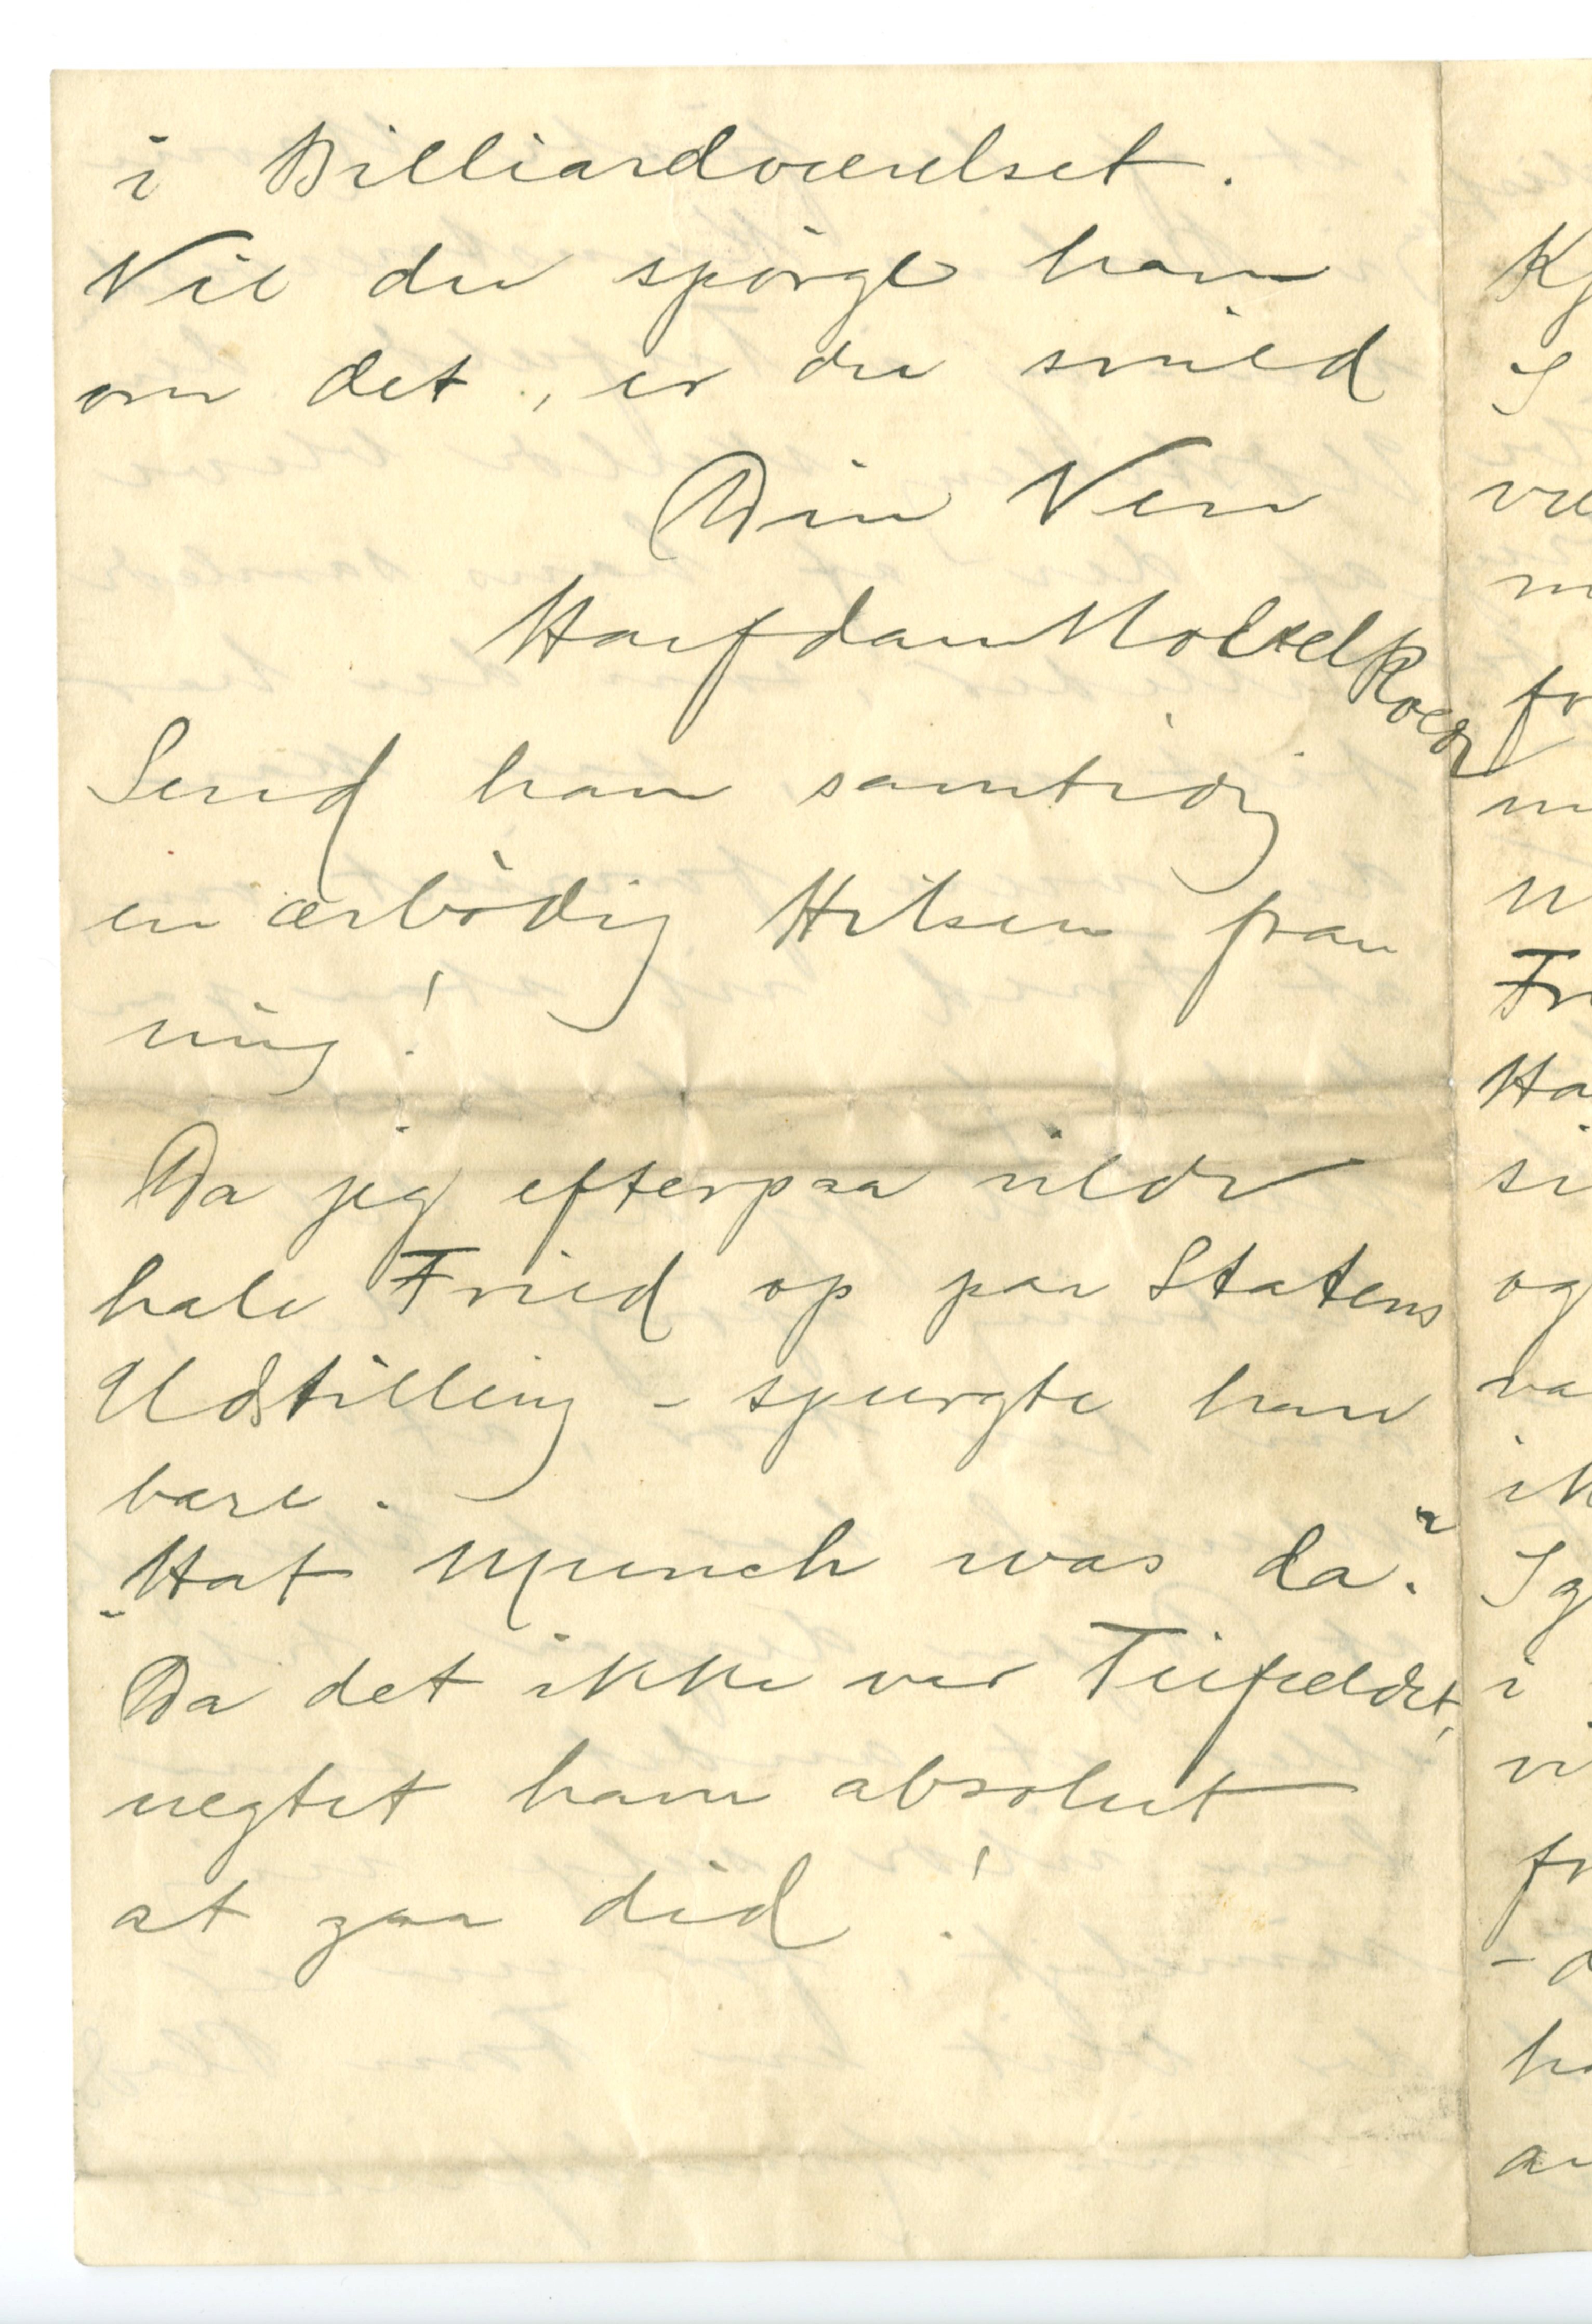 i Billiardværelset.
Vil du spørge ham
om det, er du snild
Din Ven
Halfdan Nobel Roede
Send ham samtidig
en ærbødig Hilsen fran
mig!
Da jeg efterpaa vilde
hale Fried op paa Statens
Udstilling – spurgte han
bare.
"Hat Munch was da."
Da det ikke var Tilfeldet,
negtet ham absolut
at gaa did!